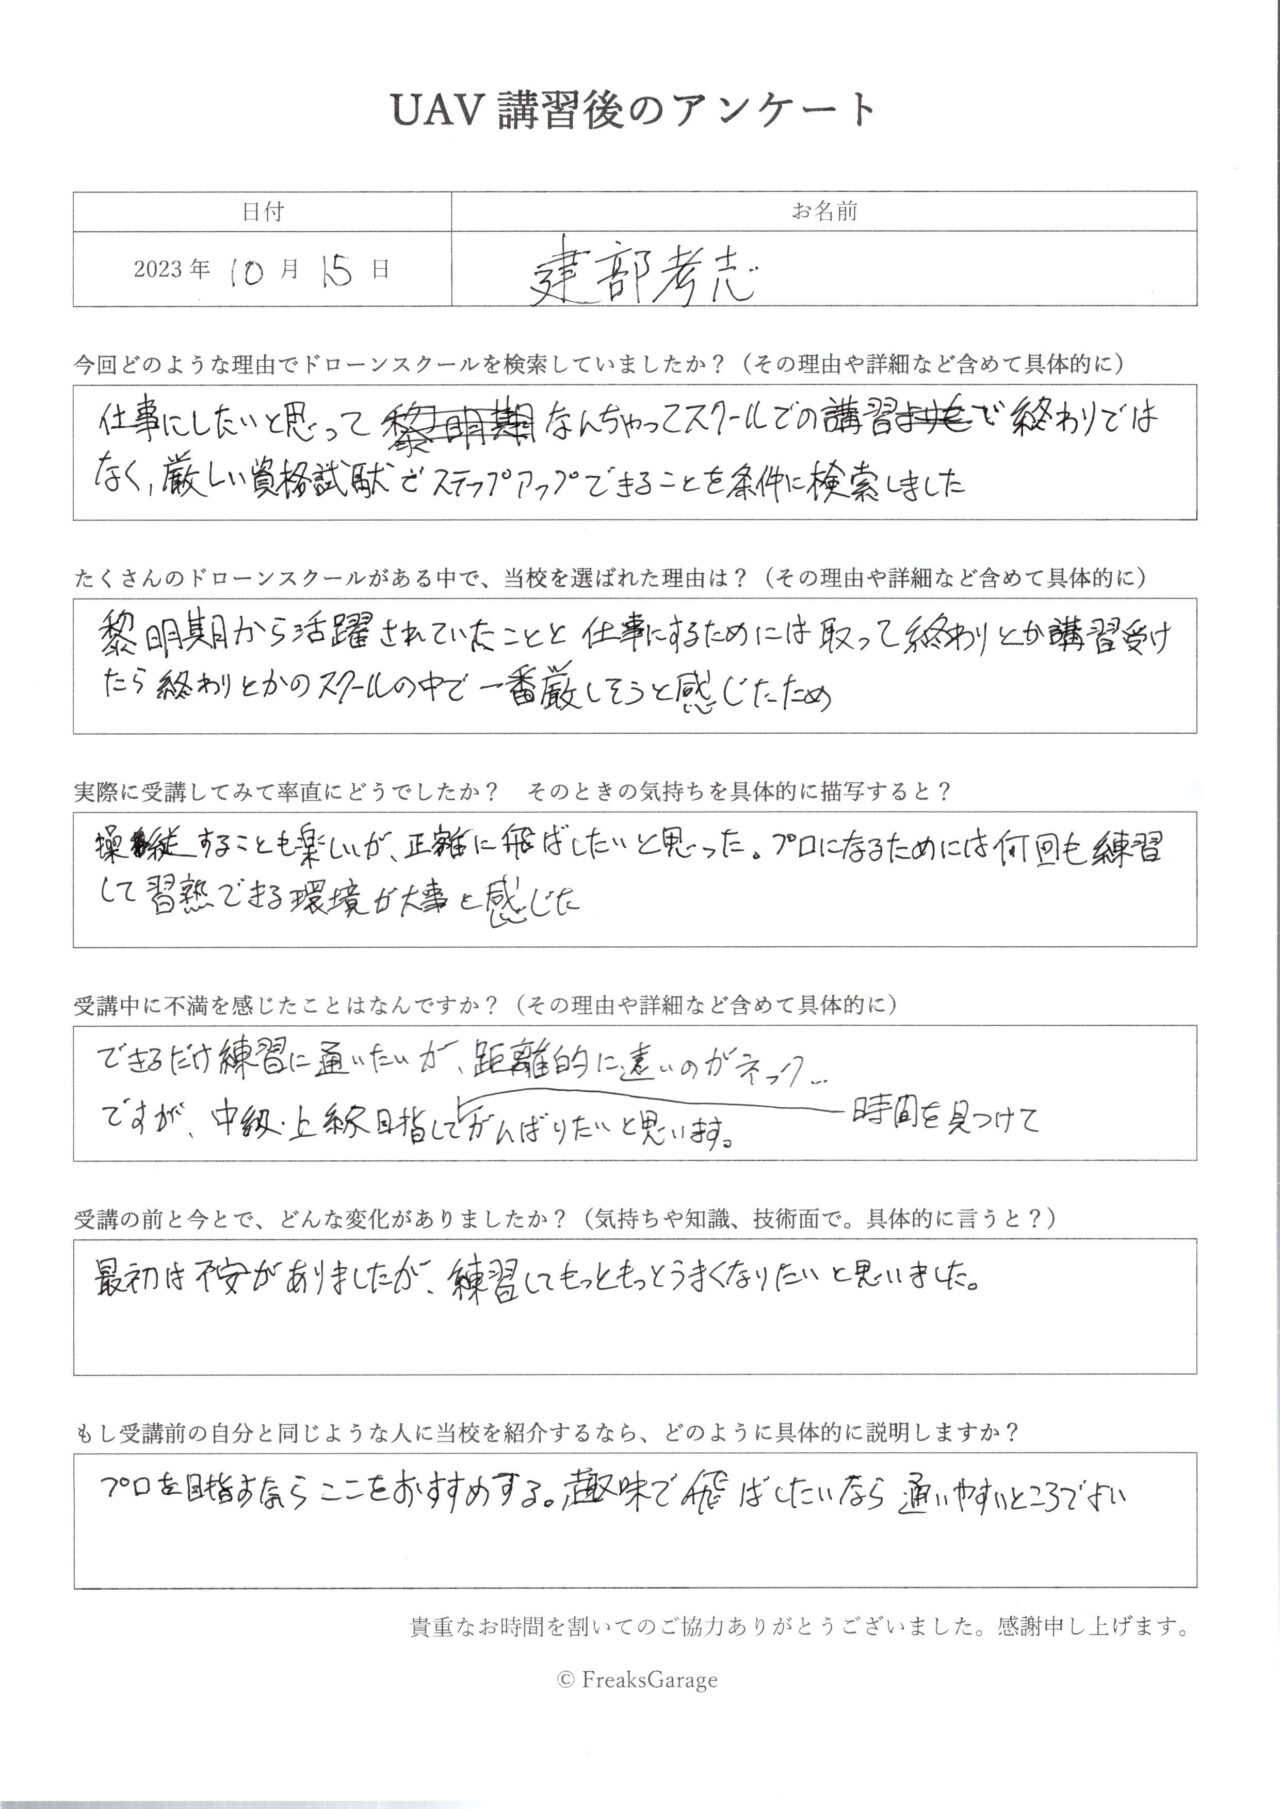 UAV 講習後のアンケート
日付 お名前
2023年 10月 15日 建部考志
今回どのような理由でドローンスクールを検索していましたか？（その理由や詳細など含めて具体的に）
仕事にしたいと思って 黎明期 なんちゃってスクールでの講習で終わりでは
なく、厳しい資格試験でステップアップできることを条件に検索しました
たくさんのドローンスクールがある中で、当校を選ばれた理由は？（その理由や詳細など含めて具体的に）
黎明期から活躍されていたことと 仕事にするためには 取って終わりとか講習受け
たら終わりとかのスクールの中で一番厳しそうと感じたため
実際に受講してみて率直にどうでしたか？　そのときの気持ちを具体的に描写すると？
操縦することも楽しいが、正確に飛ばしたいと思った。プロになるためには何回も練習
して習熟できる環境が大事と感じた
受講中に不満を感じたことはなんですか？（その理由や詳細など含めて具体的に）
できるだけ練習に通いたいが、距離的に遠いのがネック…
ですが、中級・上級目指してがんばりたいと思います。
時間を見つけて
受講の前と今とで、どんな変化がありましたか？（気持ちや知識、技術面で。具体的に言うと？）
最初は不安がありましたが、練習してもっともっとうまくなりたいと思いました。
もし受講前の自分と同じような人に当校を紹介するなら、どのように具体的に説明しますか？
プロを目指すならここをおすすめする。趣味で飛ばしたいなら通いやすいところでよい
貴重なお時間を割いてのご協力ありがとうございました。感謝申し上げます。
© FreaksGarage